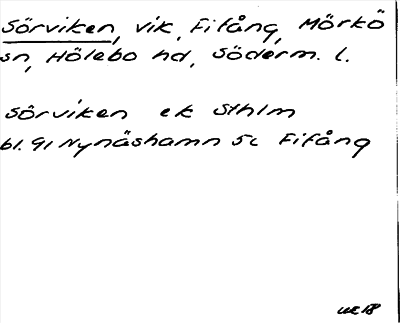 Sörviken, vik, Fifång, Mörkö
sn, Hölebo hd, Söderm. l.
Sörviken ek Sthlm
bl. 91 Nynäshamn 5c Fifång